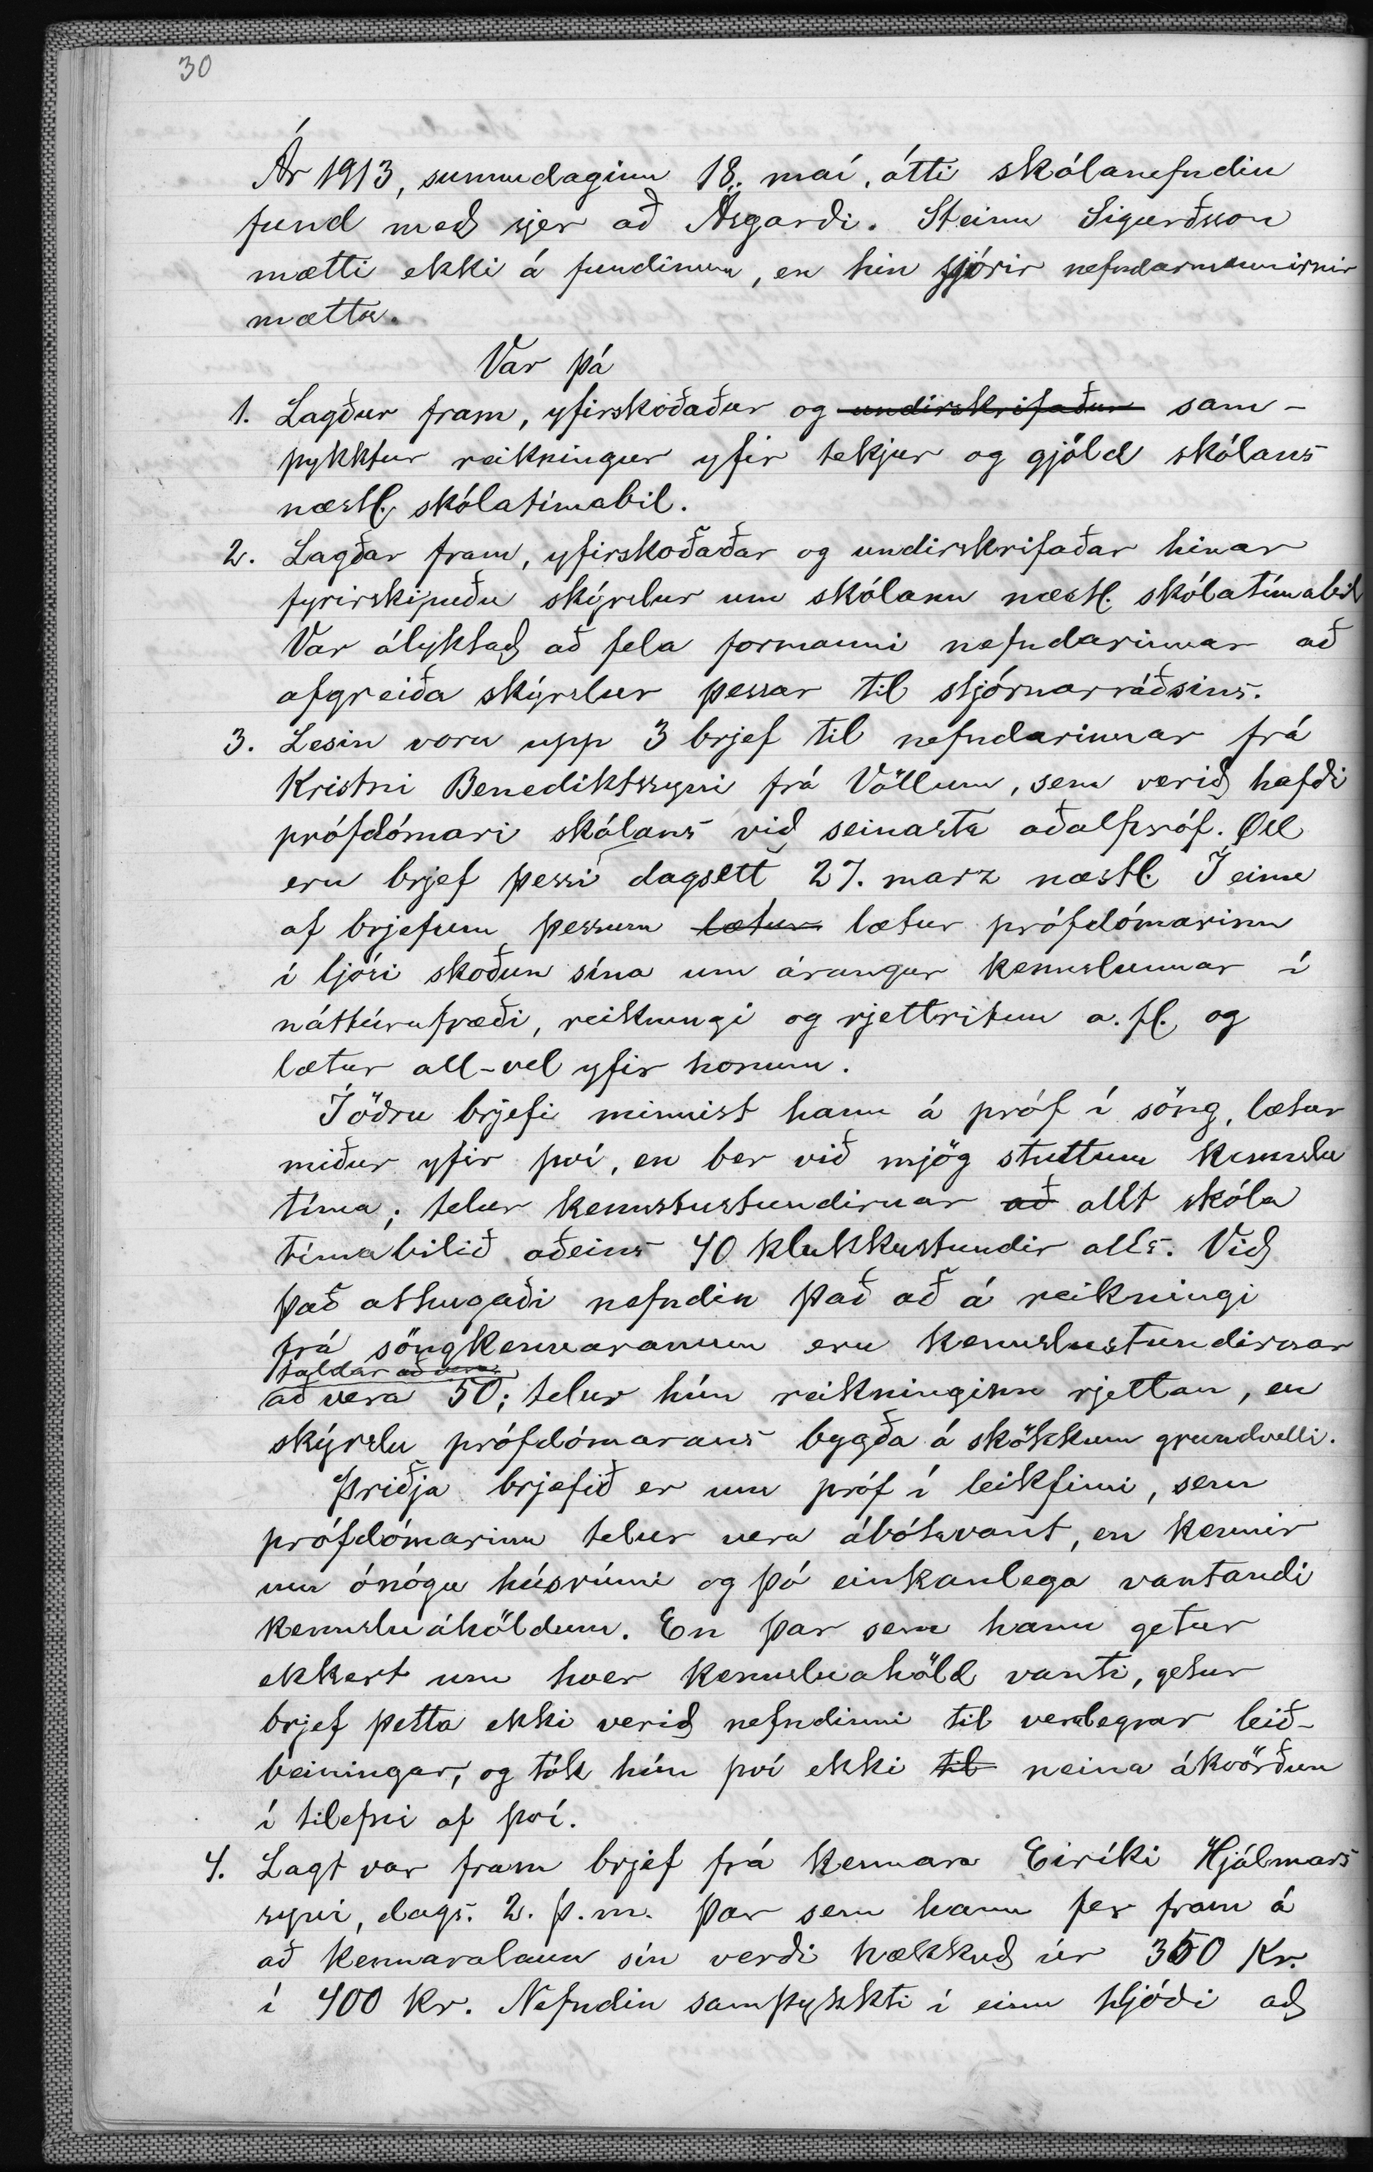 30
Ár 1913, sunnudaginn 18. maí, átti skólanefndin
fund með sjer að Ásgarði. Steinn Sigurðsson
mætti ekki á fundinum, en hin fjórir nefndarmennirnir
mættu.
Var þá
1. Lagður fram, yfirskoðaður og undirskrifaður sam-
þykktur reikningur yfir tekjur og gjöld skólans
næstl. skólatímabil.
2. Lagðar fram, yfirskoðaðar og undirskrifaðar hinar
fyrirskipuðu skýrslur um skólann næstl. skólatímabil
Var ályktað að fela formanni nefndarinnar að
afgreiða skýrslur þessar til stjórnarráðsins.
3. Lesin voru upp 3 brjef til nefndarinnar frá
Kristni Benediktssyni frá Völlum, sem verið hafði
prófdómari skólans við seinasta aðalpróf. Öll
eru brjef þessi dagsett 27. marz næstl. Í einu
af brjefum þessum lætur lætur prófdómarinn
í ljósi skoðun sína um árangur kennslunnar í
náttúrufræði, reikningi og rjettritun a. fl. og
lætur all-vel yfir honum.
Í öðru brjefi minnist hann á próf í söng, lætur
miður yfir því, en ber við mjög stuttum kennslu
tíma; telur kennslustundirnar að allt skóla
tímabilið aðeins 40 klukkustundir alls. Við
það athugaði nefndin það að á reikningi
frá söngkennaranum eru kennslustundirnar
taldar að vera
að vera 50; telur hún reikninginn rjettan, en
skýrslu prófdómarans bygða á skökkum grundvelli.
Þriðja brjefið er um próf í leikfimi, sem
prófdómarinn telur vera ábótavant, en kennir
um ónógu húsrúmi og þó einkanlega vantandi
kennsluáhöldum. En þar sem hann getur
ekkert um hver kennsluahöld vanti, getur
brjef þetta ekki verið nefndinni til verulegrar leið-
beiningar, og tók hún því ekki til neina ákvörðun
í tilefni af því.
4. Lagt var fram brjef frá kennara Eiríki Hjálmars
syni, dags. 2. þ.m. þar sem hann fer fram á
að kennaralaun sín verði hækkuð úr 350 Kr.
í 400 Kr. Nefndin samþykkti í einu hljóði að